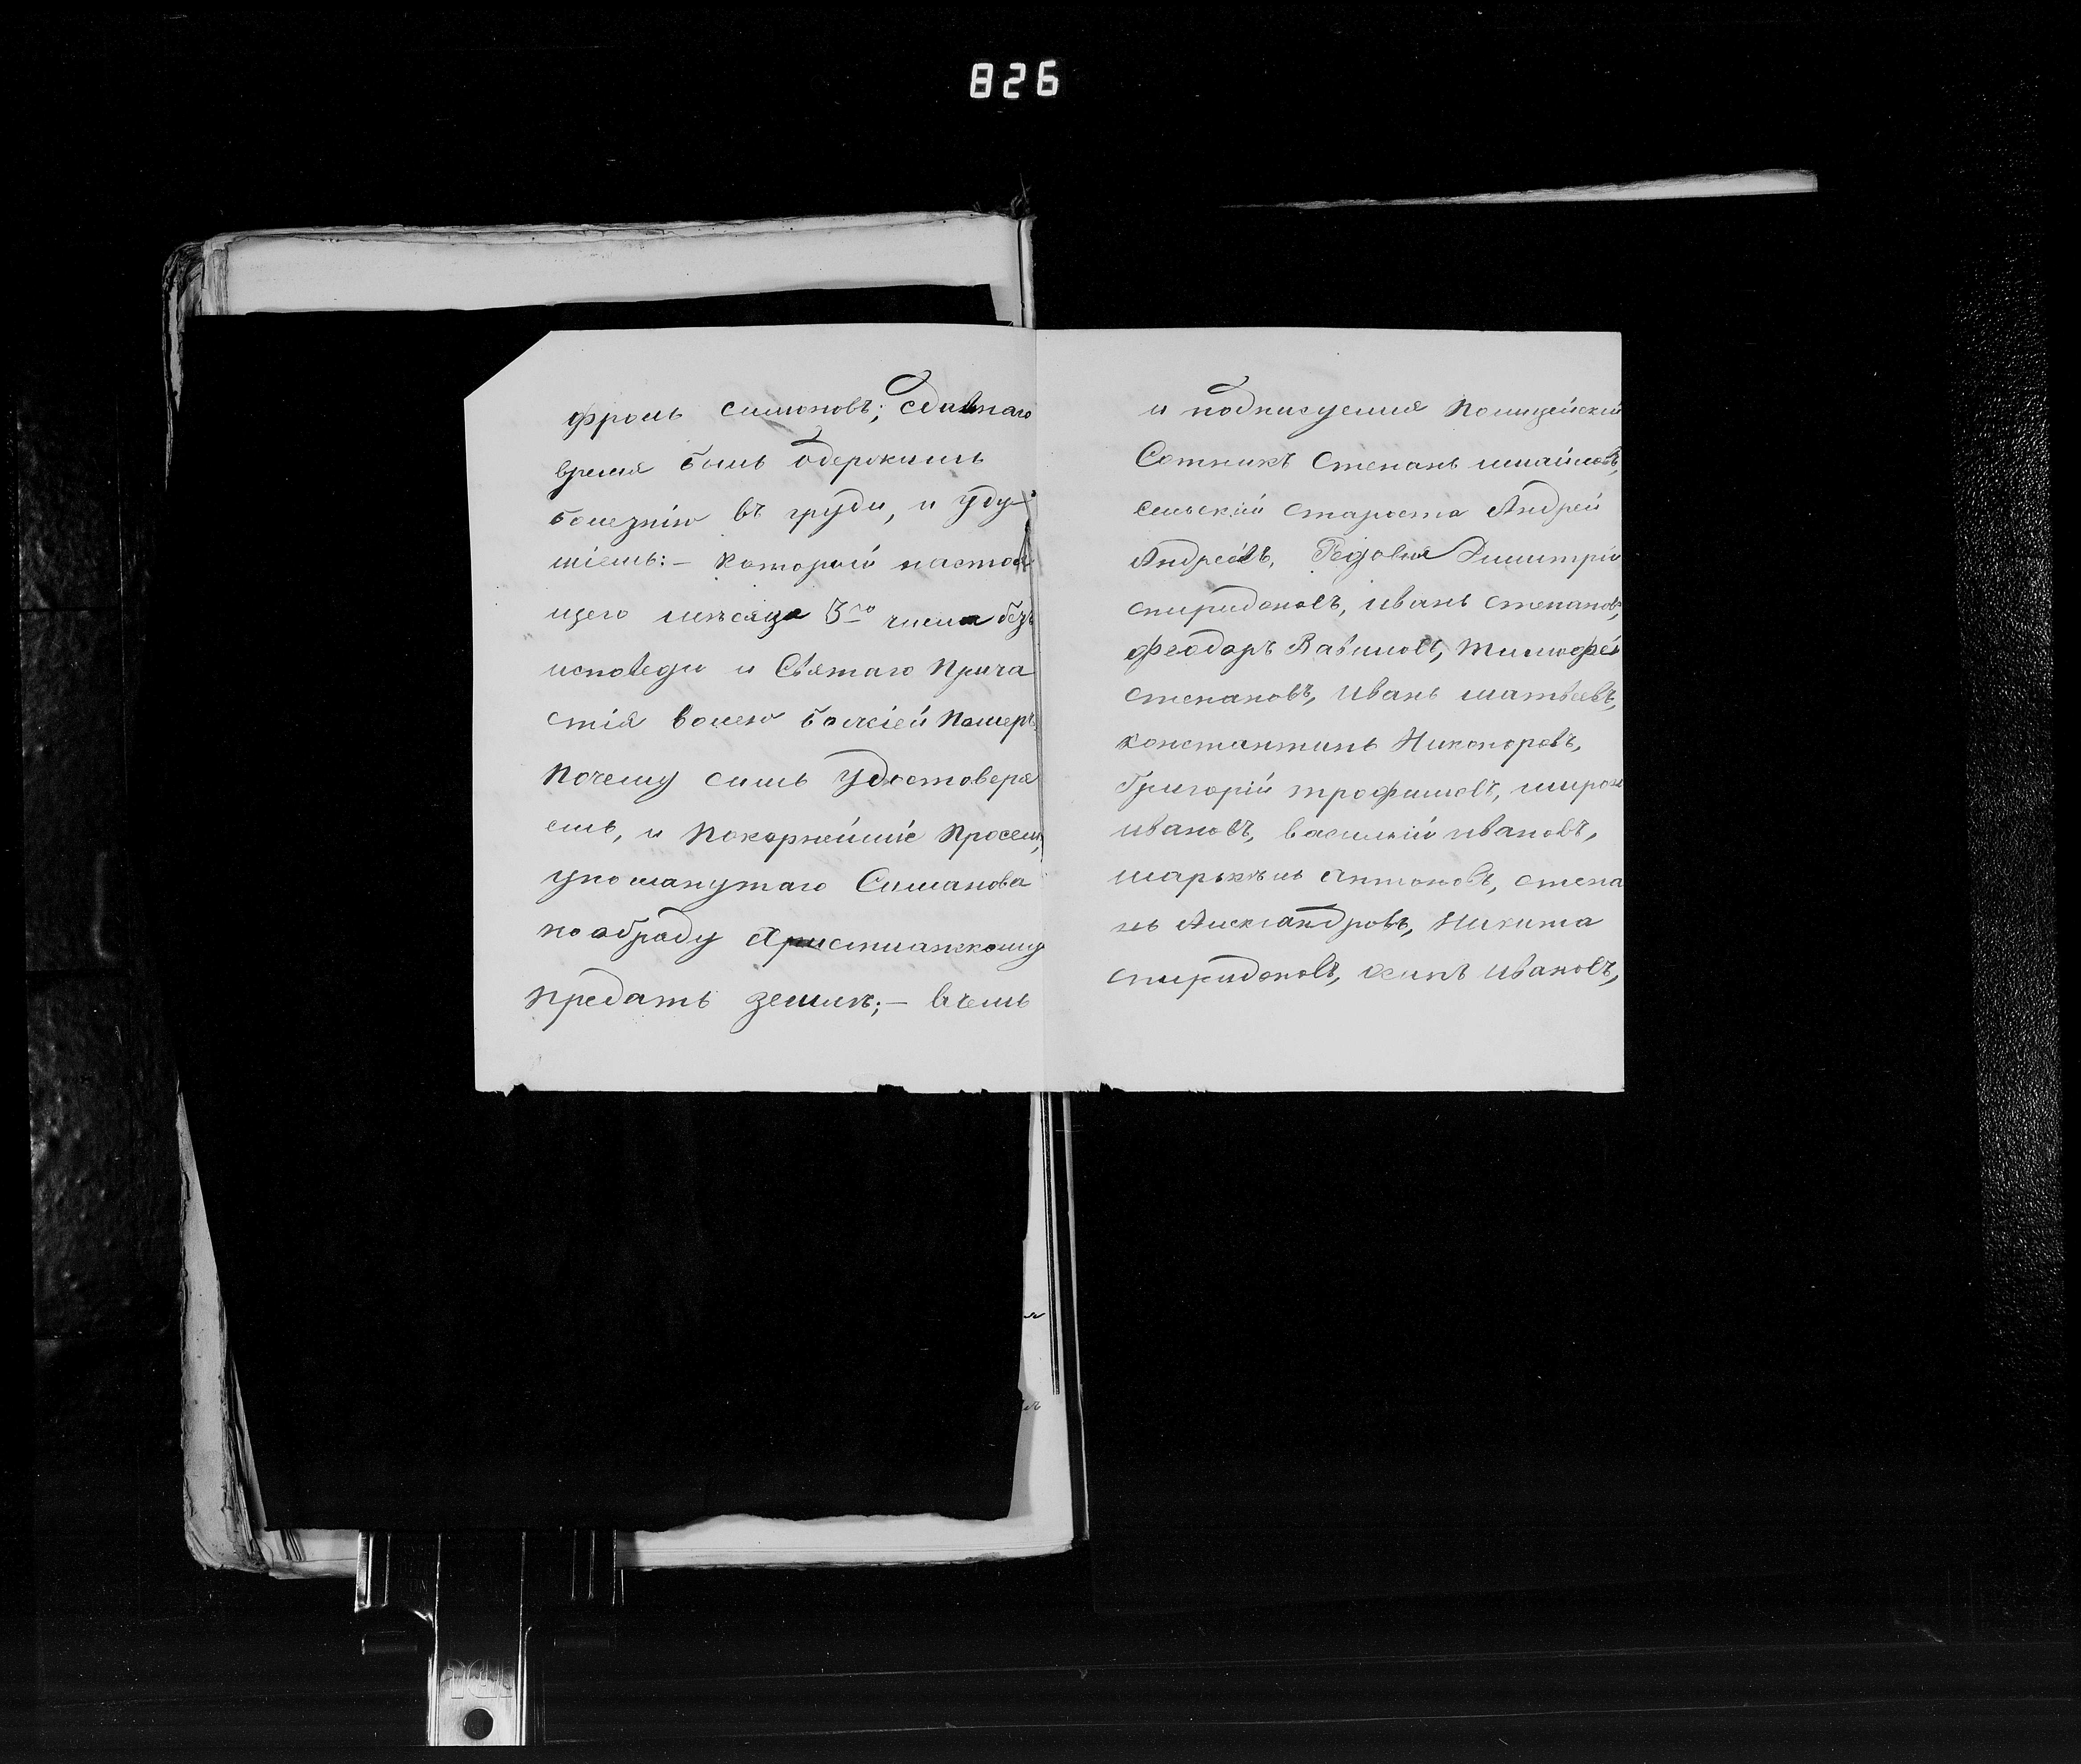 826
фромъ симоновъ; сдавнаго
время былъ одержимъ
болезнію въ груди, и уду-
шіемъ:- который настоя
щего мѣсяца 3го числа безъ
исповеди и Святаго Прича
стія волею божіей Померъ,
Почему симъ Удостоверяя
емъ, и Покорнейшіе Просемъ,
упоманутаго Симанова
по обряду христианскому
предать землѣ;- вчемъ
и подписуемся Полицейскій
Сотникъ Степанъ
сельскій староста Андрей
Андреевъ, Редовыя Димитрій
спиридоновъ, иванъ степановъ,
феодоръ Вавиловъ, тимофей
степановъ, Иванъ матвеевъ,
константинъ Никоноровъ,
Григорій трофимовъ, миронъ
ивановъ, василий ивановъ,
антоновъ, степа
нъ Александровъ, Никита
спиридоновъ, осипъ ивановъ,